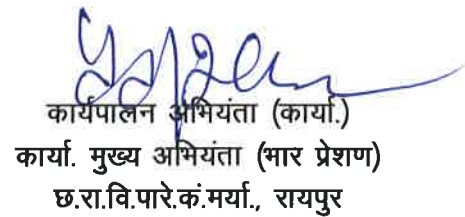 कार्यपालन अभियंता (कार्या.)
कार्या. मुख्य अभियंता (भार प्रेशण)
छ.रा.वि.पारे.कं.मर्या., रायपुर